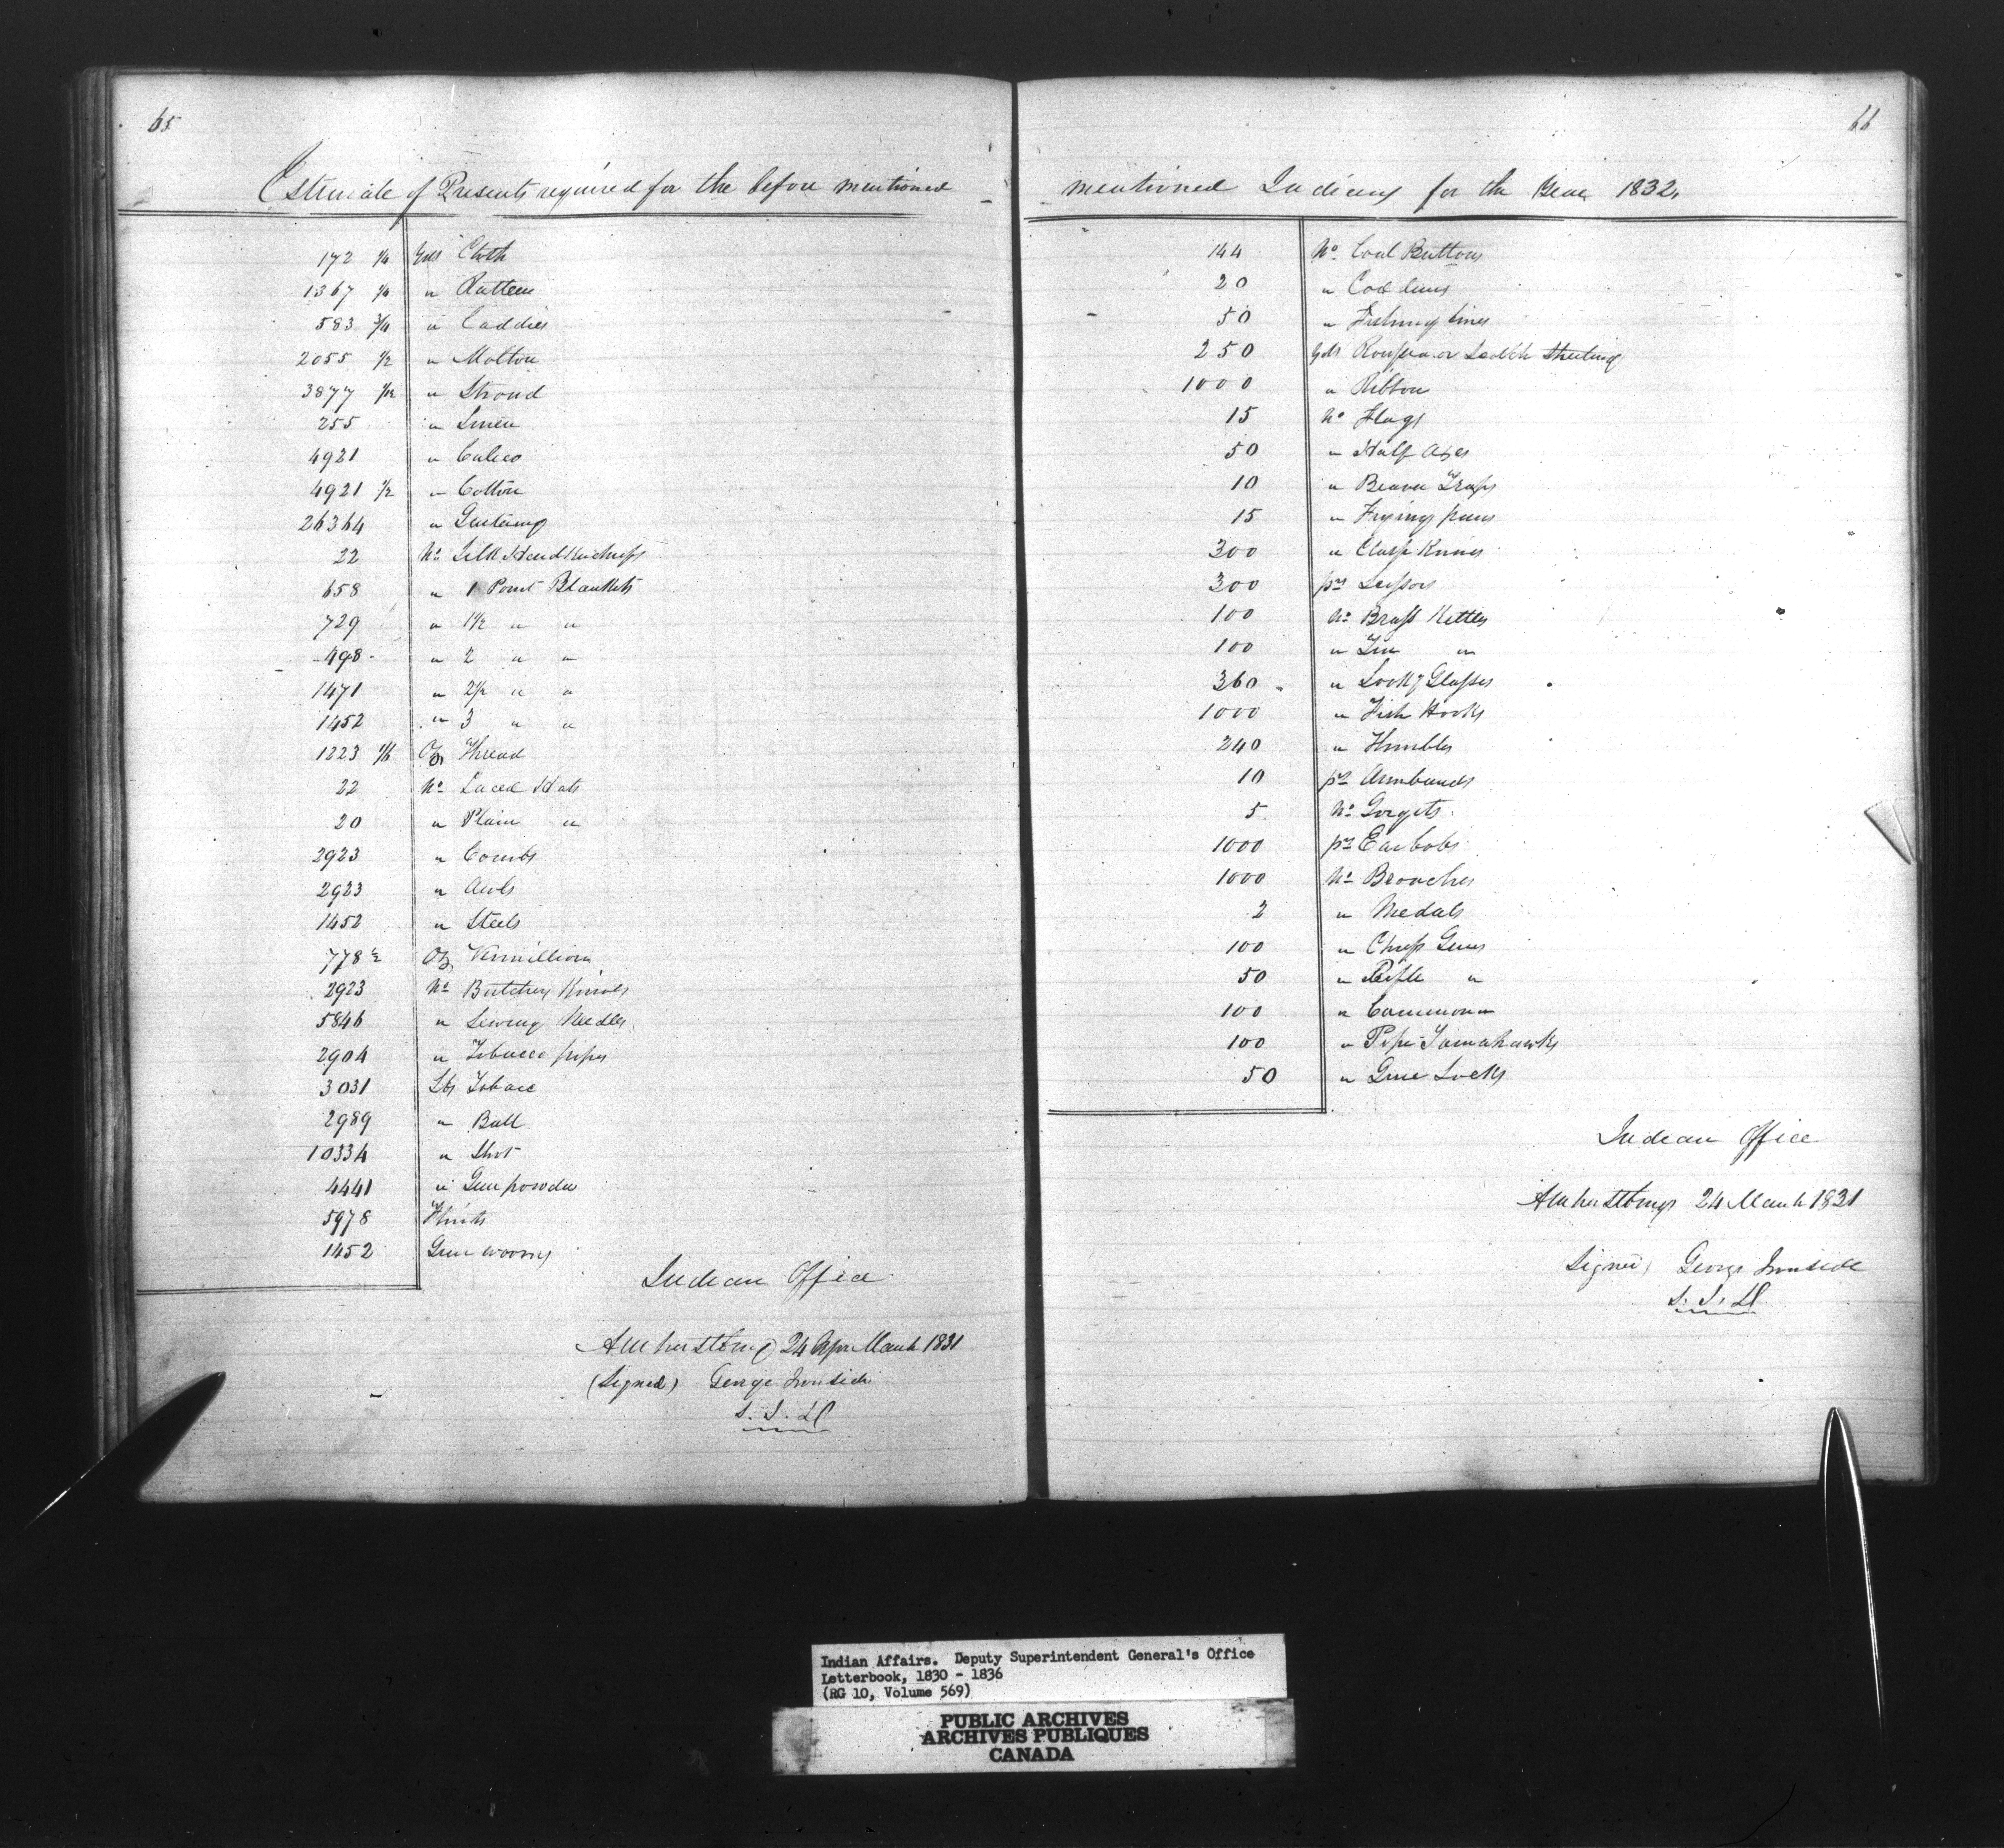 65
Estimate of Presents required for the before mentioned
172 1/4 Yds Cloth
1367 1/4 " Ratteen
583 3/4 " Caddies
2055 1/2 " Molton
3877 1/12 " Stroud
255 " Linen
4921 " Calico
4921 1/2 " Cotton
26364 " Gartering
22 No Silk Handkerchiefs
658 " 1 Point Blankets
729 " 1 1/2 " "
498 " 2 " "
1471 " 2 1/2 " "
1452 " 3 " "
1223 1/6 Oz Thread
22 No Laced Hats
20 " Plain "
2923 " Combs
2923 " Awls
1452 " Steels
778 1/2 Oz Vermillion
2923 No Butchers Knives
5846 " Sewing Needles
2904 " Tobacco pipes
3031 Lbs Tobacc
2989 " Ball
10334 " Shot
4441 " Gun powder
5978 Flints
1452 Gun worms
Indian Office
Amherstburg 24 Apr March 1831
(Signed) George Ironside
S. I. A
66
mentioned Indians for the Year 1832.
144 No Coat Buttons
20 " Cod lines
50 " Fishing lines
250 Yds Russia or Scotch Sheeting
1000 " Ribbon
15 No Flags
50 " Half Axes
10 " Beaver Traps
15 " Frying pans
300 " Clasp Knives
300 prs Scissors
100 No Brass Kettles
100 " Tin "
360 " Lookg Glasses
1000 " Fish Hooks
240 " Thimbles
10 prs Armbands
5 No Gorgets
1000 prs Earbobs
1000 No Brooches
2 " Medals
100 " Chiefs Guns
50 " Rifle "
100 " Common "
100 " Pipe Tomahawks
50 " Gun Locks
Indian Office
Amherstburg 24 March 1831
Signed) George Ironside
S. I. A
Indian Affairs. Deputy Superintendent General's Office
Letterbook, 1830 - 1836
(RG 10, Volume 569)
PUBLIC ARCHIVES
ARCHIVES PUBLIQUES
CANADA